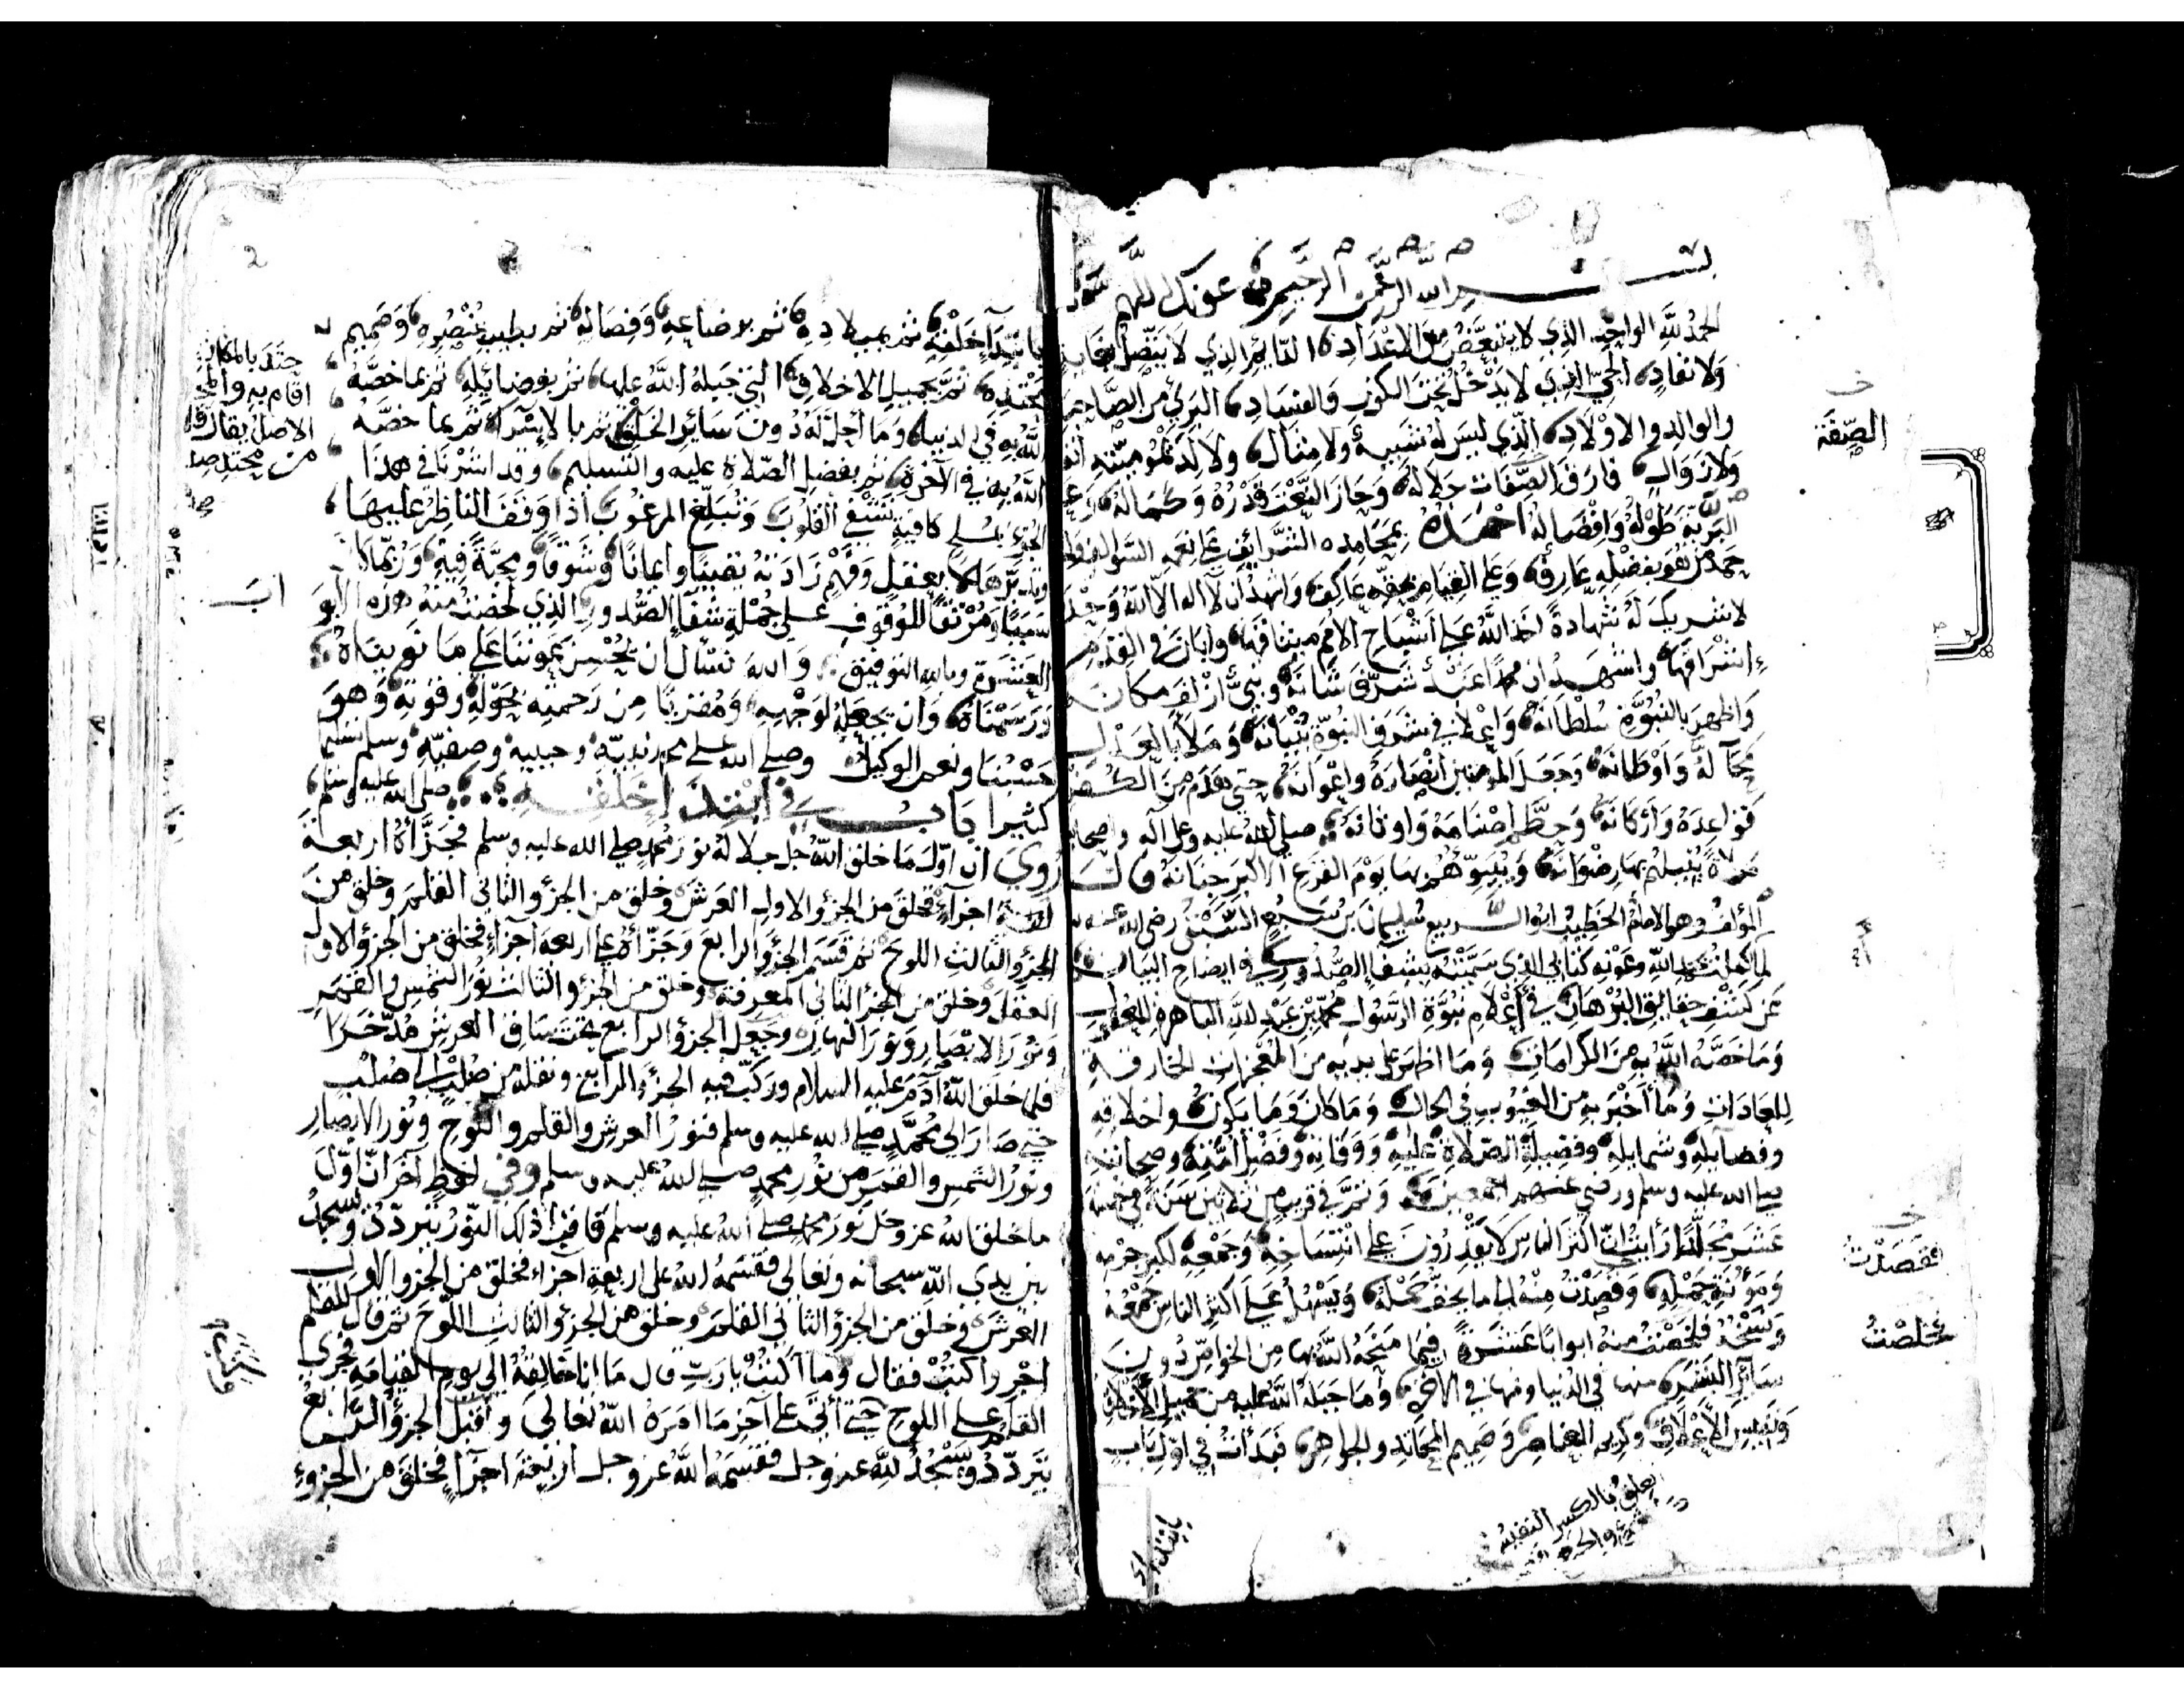 بسم الله الرحمن الرحيم عونك اللهم
الحمد لله الواحد الذي لا يتبعض من الاعداد الدائم الذي لا
ولا نفاد الحي الذي لا يدخل تحت الكون والفساد البري من الصاحبة
والوالد والاولاد الذي ليس له شبيه ولا مثال ولا
ولا زوال فارق الصفات جلاله وحاز النعت قدره وكماله
البرية طوله وافضاله احمده بمحامده الشرائف على نعمه السوالف
حمد من هو بفضله عارف وعلى القيام بحقه عاكف واشهد ان لا اله الا الله وحده
لا شريك له شهادة اخذ الله على اشباح الامم ميثاقها وابان في القدم
اشراقها واشهد ان محمدا عبد شرف شانه ونبي ازلف مكانه
واظهر بالنبوة سلطانه واعلا في شرف النبوة بنيانه وملا بالعدل
محاله واوطانه وجعل المومنين انصاره واعوانه حتى هدم من الكفر
قواعده واركانه وحطم اصنامه واوثانه صلى الله عليه وعلى آله واصحابه
صلاة ينيلهم بها رضوانه ويبوئهم بها يوم الفزع الاكبر جنانه قال
المؤلف وهو الامام الخطيب ابو الربيع سليمان بن سبع السبتي رضي الله عنه
لما كملت بحمد الله وعونه كتابي الذي سميته بشفا الصدور في ايضاح البيان
عن كشف حقايق البرهان في اعلام نبوة الرسول محمد بن عبد الله الباهرة
وما خصه الله به من الكرامات وما اظهر على يديه من المعجزات الخارقة
للعادات وما أخبر به من الغيوب في الحال وما كان وما يكون واخلاقه
وفضايله وشمايله وفضيلة الصلاة عليه ووفاته وفضل امته وصحابته
صلى الله عليه وسلم ورضي عنهم اجمعين وتم في قريب من ثلاثين سنة في خمسة
عشر مجلدا رأيت ان اكثر الناس لا يقدرون على انتساخه وجمعه لكبر جرمه
ومؤنة حمله وقصدت منه الى ما يخف حمله ويسهل على اكثر الناس جمعه
ونسخه فلخصت منه ابوابا عشرة فيما منحه الله بها من الخواص دون
سائر البشر منها في الدنيا ومنها في الاخرى وما جبله الله عليه من جميل الاخلاق
ونفيس الأعلاق وكريم العناصر وصميم المحاتد والجواهر فبدأت في اول باب
بابتداء
الصفة
فقصدت
فخلصت
العلق بالكسر النفيس
بابتداء خلقه ثم بميلاده ثم برضاعه وفصاله ثم بطيب عنصره وصميم
محتده ثم بجميل الاخلاق التي جبله الله عليها ثم بفضائله ثم بما خصه
الله به في الدنيا وما أحل له دون سائر الخلق ثم بالإسراء ثم بما خصه
الله به في الآخرة ثم بفضل الصلاة عليه والتسليم وقد اشرنا في هذا
الجزء كافية تشفي القلوب وتبلغ المرغوب اذا وقف الناظر عليها
وتدبرها بعقل وفهم زادته يقينا وايمانا وشوقا ومحبة فيه وربما كان
سببا للوقوف على جملة شفا الصدور الذي لخصت منه هذه الابواب
العشرة وبالله التوفيق والله نسال ان يحسن عوننا على ما نويناه
ورسمناه وان يجعله لوجهه ومقربا من رحمته بحوله وقوته وهو
حسبنا ونعم الوكيل وصلى الله على محمد نبيه وحبيبه وصفيه وسلم تسليما
كثيرا باب في ابتداء خلقه صلى الله عليه وسلم
روي ان اول ما خلق الله جل جلاله نور محمد صلى الله عليه وسلم فجزأه اربعة
اجزاء فخلق من الجزؤ الاول العرش وخلق من الجزؤ الثاني القلم وخلق من
الجزؤ الثالث اللوح ثم قسم الجزؤ الرابع وجزأه على اربعة اجزاء فخلق من الجزؤ الاول
العقل وخلق من الجزؤ الثاني المعرفة وخلق من الجزؤ الثالث نور الشمس والقمر
ونور الابصار ونور النهار وجعل الجزؤ الرابع تحت ساق العرش مدخرا
فلما خلق الله آدم عليه السلام وركب فيه الجزؤ الرابع ونقله من صلب الى صلب
حتى صار الى محمد صلى الله عليه وسلم فنور العرش والقلم واللوح ونور الابصار
ونور الشمس والقمر من نور محمد صلى الله عليه وسلم وفي لفظ آخر ان اول
ما خلق الله عز وجل نور محمد صلى الله عليه وسلم فاقبل ذلك النور يتردد ويسجد
بين يدي الله سبحانه وتعالى فقسمه الله على اربعة اجزاء فخلق من الجزؤ الاول
العرش فخلق من الجزؤ الثاني القلم وخلق من الجزؤ الثالث اللوح ثم قال للقلم
اجر واكتب فقال وما اكتب يا رب قال ما انا خالقه الى يوم القيامة فجرى
القلم على اللوح حتى أتى على آخر ما امره الله تعالى واقبل الجزؤ الرابع
يتردد ويسجد لله عز وجل فقسمه الله عز وجل اربعة اجزا فخلق من الجزؤ
حتد بالمكان
اقام به والمحتد
الاصل يقال فلان
من محتد صدق
2